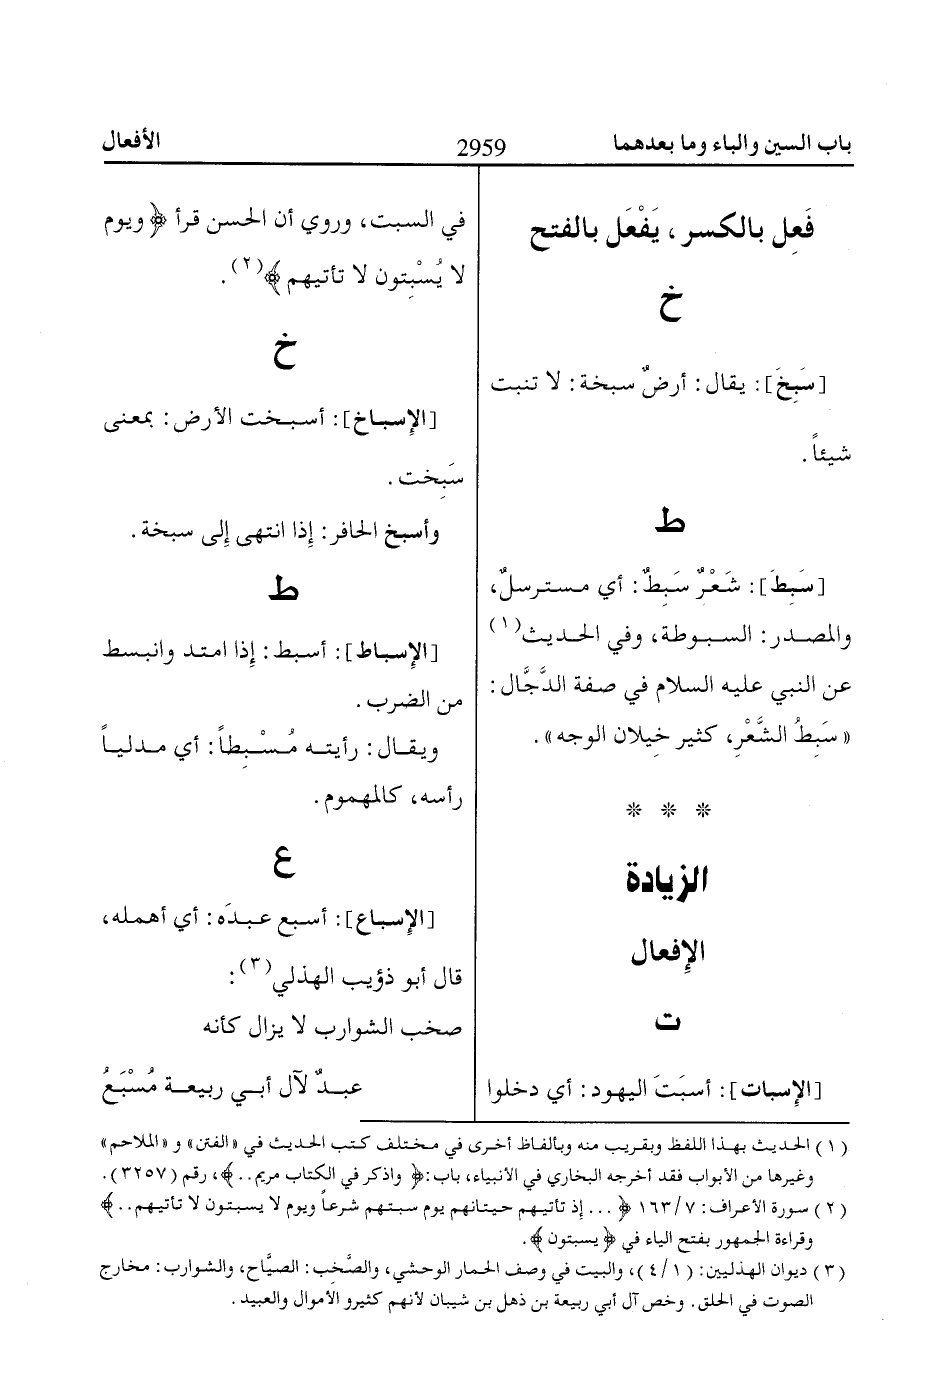 باب السين والباء وما بعدهما
2959
الأفعال
فَعِل بالكسر ، يَفْعَل بالفتح
خ
[سَبِخَ]: يقال: أرضٌ سبخة: لا تنبت
شيئاً.
ط
[سَبِطَ]: شَعْرٌ سَبِطٌ: أي مسترسلٌ،
والمصدر: السبوطة، وفي الحديث(١)
عن النبي عليه السلام في صفة الدَّجَّال:
«سَبِطُ الشَّعْرِ، كثير خِيلان الوجه».
* * *
الزيادة
الإفعال
ت
[الإسبات]: أسبَتَ اليهود: أي دخلوا
في السبت، وروي أن الحسن قرأ ﴿ويوم
لا يُسْبِتون لا تأتيهم﴾(٢).
خ
[الإسباخ]: أسبخت الأرض: بمعنى
سَبِخت.
وأسبخ الحافر: إذا انتهى إلى سبخة.
ط
[الإسباط]: أسبط: إذا امتد وانبسط
من الضرب.
ويقال: رأيته مُسْبِطاً: أي مدلياً
رأسه، كالمهموم.
ع
[الإسباع]: أسبع عبدَه: أي أهمله،
قال أبو ذؤيب الهذلي(٣):
صخب الشوارب لا يزال كأنه
عبدٌ لآل أبي ربيعة مُسْبَعُ
(١) الحديث بهذا اللفظ وبقريب منه وبألفاظ أخرى في مختلف كتب الحديث في «الفتن» و «الملاحم»
وغيرها من الأبواب فقد أخرجه البخاري في الأنبياء، باب: ﴿واذكر في الكتاب مريم..﴾، رقم (٣٢٥٧).
(٢) سورة الأعراف: ٧/ ١٦٣ ﴿... إذ تأتيهم حيتانهم يوم سبتهم شرعاً ويوم لا يسبتون لا تأتيهم..﴾
وقراءة الجمهور بفتح الياء في ﴿يسبتون﴾.
(٣) ديوان الهذليين: (١/ ٤)، والبيت في وصف الحمار الوحشي، والصَّخِب: الصيَّاح، والشوارب: مخارج
الصوت في الحلق. وخص آل أبي ربيعة بن ذهل بن شيبان لأنهم كثيرو الأموال والعبيد.